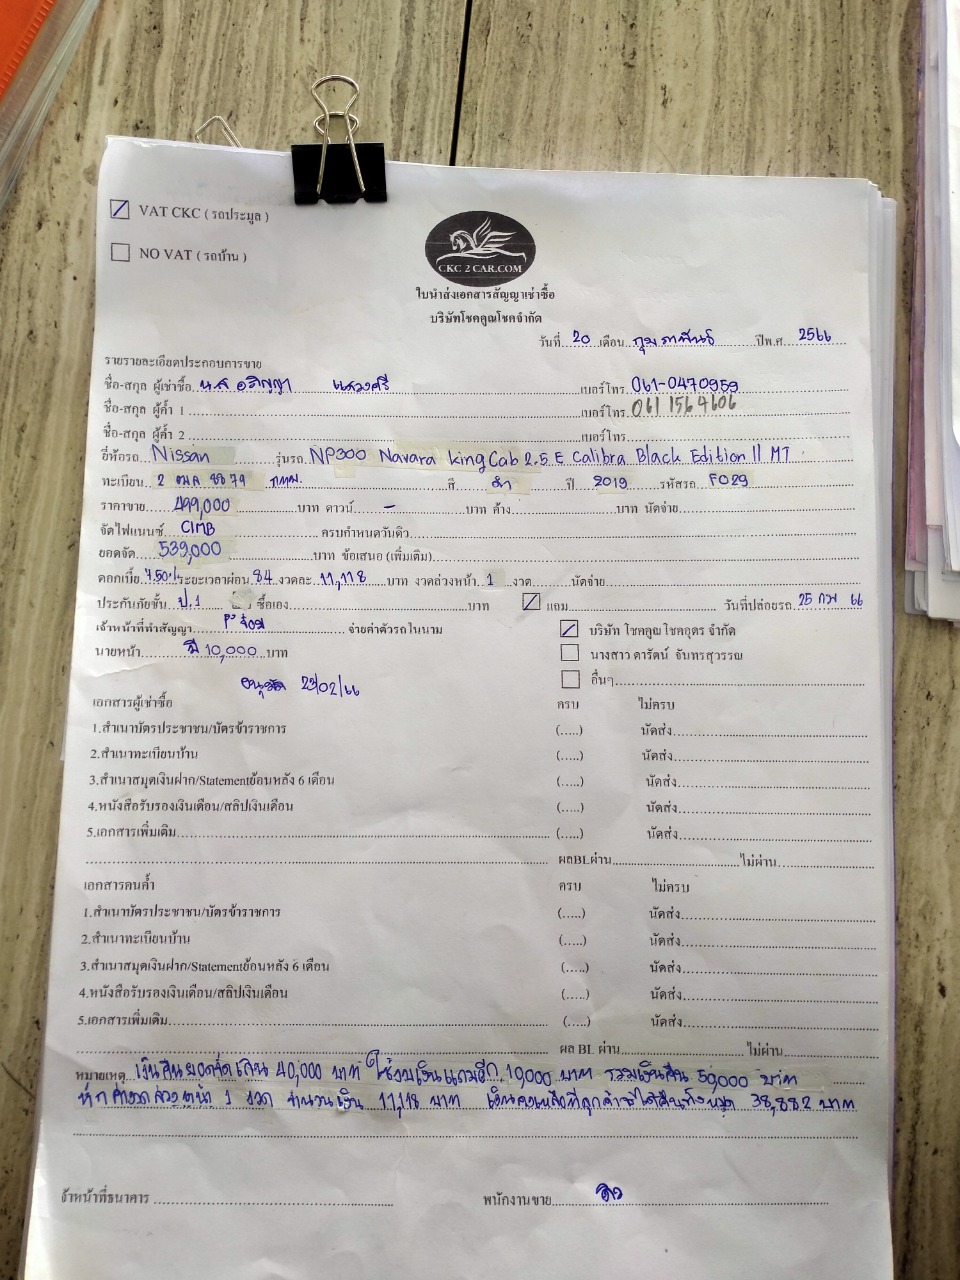 VAT CKC ( รถประมูล )
NO VAT ( รถบ้าน )
CKC 2 CAR.COM
ใบนำส่งเอกสารสัญญาเช่าซื้อ
บริษัทโชคคูณโชคจำกัด
วันที่ 20 เดือน กุมภาพันธ์ ปีพ.ศ 2566
รายรายละเอียดประกอบการขาย
ชื่อ-สกุล ผู้เช่าซื้อ น.ส อภิญญา แสวงศรี เบอร์โทร 061-0470959
ชื่อ-สกุล ผู้ค้ำ 1 เบอร์โทร 061 1564606
ชื่อ-สกุล ผู้ค้ำ 2 เบอร์โทร
ยี่ห้อรถ Nissan รุ่นรถ NP300 Navara King Cab 2.5 E Calibra Black Edition II MT
ทะเบียน 2 ฒล 8879 กทม. สี ดำ ปี 2019 รหัสรถ F029
ราคาขาย 499,000 บาท ดาวน์ - บาท ค้าง บาท นัดจ่าย
จัดไฟแนนซ์ CIMB ครบกำหนดวันดิว
ยอดจัด 539,000 บาท ข้อเสนอ (เพิ่มเติม)
ดอกเบี้ย 4.50% ระยะเวลาผ่อน 84 งวดละ 11,118 บาท งวดล่วงหน้า 1 งวด นัดจ่าย
ประกันภัยชั้น ป.1 ซื้อเอง บาท แถม วันที่ปล่อยรถ 25 กพ 66
เจ้าหน้าที่ทำสัญญา จ่ายค่าตัวรถในนาม บริษัท โชคคูณโชคอุดร จำกัด
นายหน้า มี 10,000 บาท นางสาว ดารัตน์ จันทรสุวรรณ
อนุมัติ 23/02/66 อื่นๆ
เอกสารผู้เช่าซื้อ ครบ ไม่ครบ
1.สำเนาบัตรประชาชน/บัตรข้าราชการ (.....) นัดส่ง
2.สำเนาทะเบียนบ้าน (.....) นัดส่ง
3.สำเนาสมุดเงินฝาก/Statementย้อนหลัง 6 เดือน (.....) นัดส่ง
4.หนังสือรับรองเงินเดือน/สลิปเงินเดือน (.....) นัดส่ง
5.เอกสารเพิ่มเติม (.....) นัดส่ง
ผลBLผ่าน ไม่ผ่าน
เอกสารคนค้ำ ครบ ไม่ครบ
1.สำเนาบัตรประชาชน/บัตรข้าราชการ (.....) นัดส่ง
2.สำเนาทะเบียนบ้าน (.....) นัดส่ง
3.สำเนาสมุดเงินฝาก/Statementย้อนหลัง 6 เดือน (.....) นัดส่ง
4.หนังสือรับรองเงินเดือน/สลิปเงินเดือน (.....) นัดส่ง
5.เอกสารเพิ่มเติม (.....) นัดส่ง
ผล BL ผ่าน ไม่ผ่าน
หมายเหตุ เงินคืนยอดจัดเกิน 40,000 บาท ใช้งบเงินแถมอีก 10,000 บาท รวมเงินคืน 50,000 บาท
หัก ค่างวดล่วงหน้า 1 งวด จำนวนเงิน 11,118 บาท เงินคงเหลือที่ลูกค้าจะได้คืนทั้งหมด 38,882 บาท
จ้าหน้าที่ธนาคาร พนักงานขาย